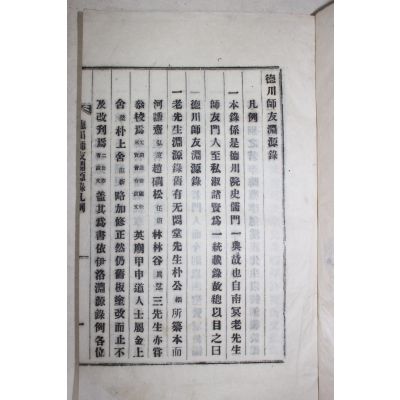 德川師友淵源錄
凡例
一本錄係是德川院史儒門一典故也自南冥老先生
師友門人至私淑諸賢爲一統載錄故總以目之曰
德川師友淵源錄
一老先生淵源錄舊有无悶堂先生朴公絪所纂本而
河謙齋弘道趙澗松任道林林谷眞怤三先生亦嘗
叅校爲 英廟甲申道人士屬金上
舍 朴上舍 略加修正然仍舊板塗改而止不
及改刊爲 蓋其爲書依伊洛淵源錄例各位
德川師友淵源錄凡例